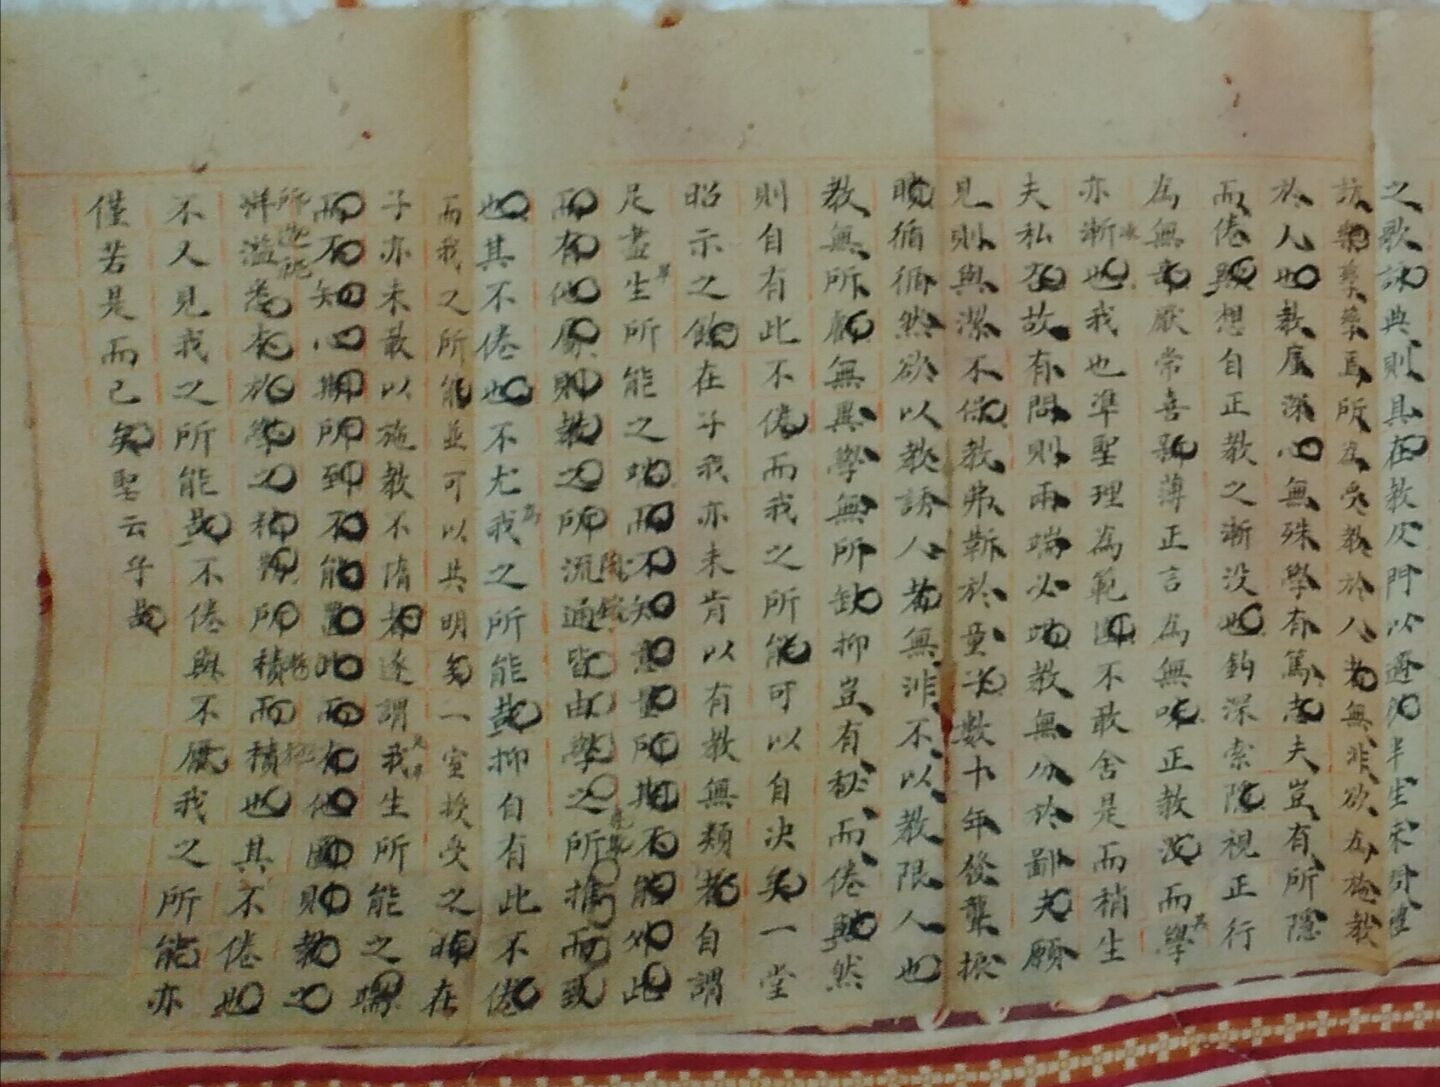 之歌詠典則具在教及門以適
於人也教廑深心無殊學有篤志夫豈有所隱
而倦與想自正教之漸沒也鈎深索隱視正行
為無奇厭常喜新薄正言為無味正教沒而學
亦漸也我也準聖理為範圍不敢舍是而稍生
夫私衷故有問則兩端必竭教無分於鄙夫願
見則與潔不保教弗靳於童子數十年發聾振
聵循循然欲以教誘人者無非不以教限人也
教無所斁無異學無所缺抑豈有秘而倦與然
則自有此不倦而我之所能可以自決矣一堂
昭示之餘在子我亦未肯以有教無類者自謂
足盡生所能之端而不知意量所期不能外此
而有他屬則教之所流通皆由學之所擴而致
也其不倦也不尤我之所能哉抑自有此不倦
而我之所能並可以共明矣一室授受之時在
子亦未敢以施教不隋者遂謂我生所能之端
而不知心期所到不能置此而有他圖則教之
洋溢悉本於學之積所積而積也其不倦也
不又見我之所能哉不倦與不厭我之所能亦
僅若是而已矣聖云乎哉